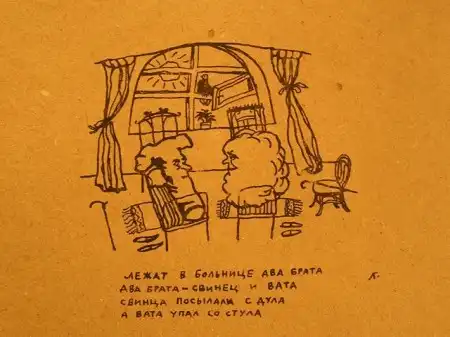 ЛЕЖАТ В БОЛЬНИЦЕ ДВА БРАТА
ДВА БРАТА – СВИНЕЦ И ВАТА
СВИНЦА ПОСЫЛАЛИ С ДУЛА
А ВАТА УПАЛ СО СТУЛА